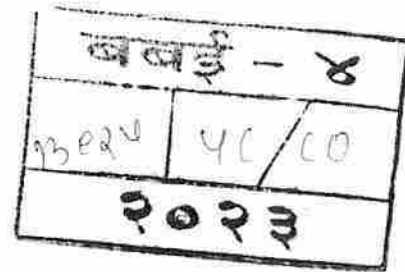 बबई - ४
१३९२५ ५८/८०
२०२३